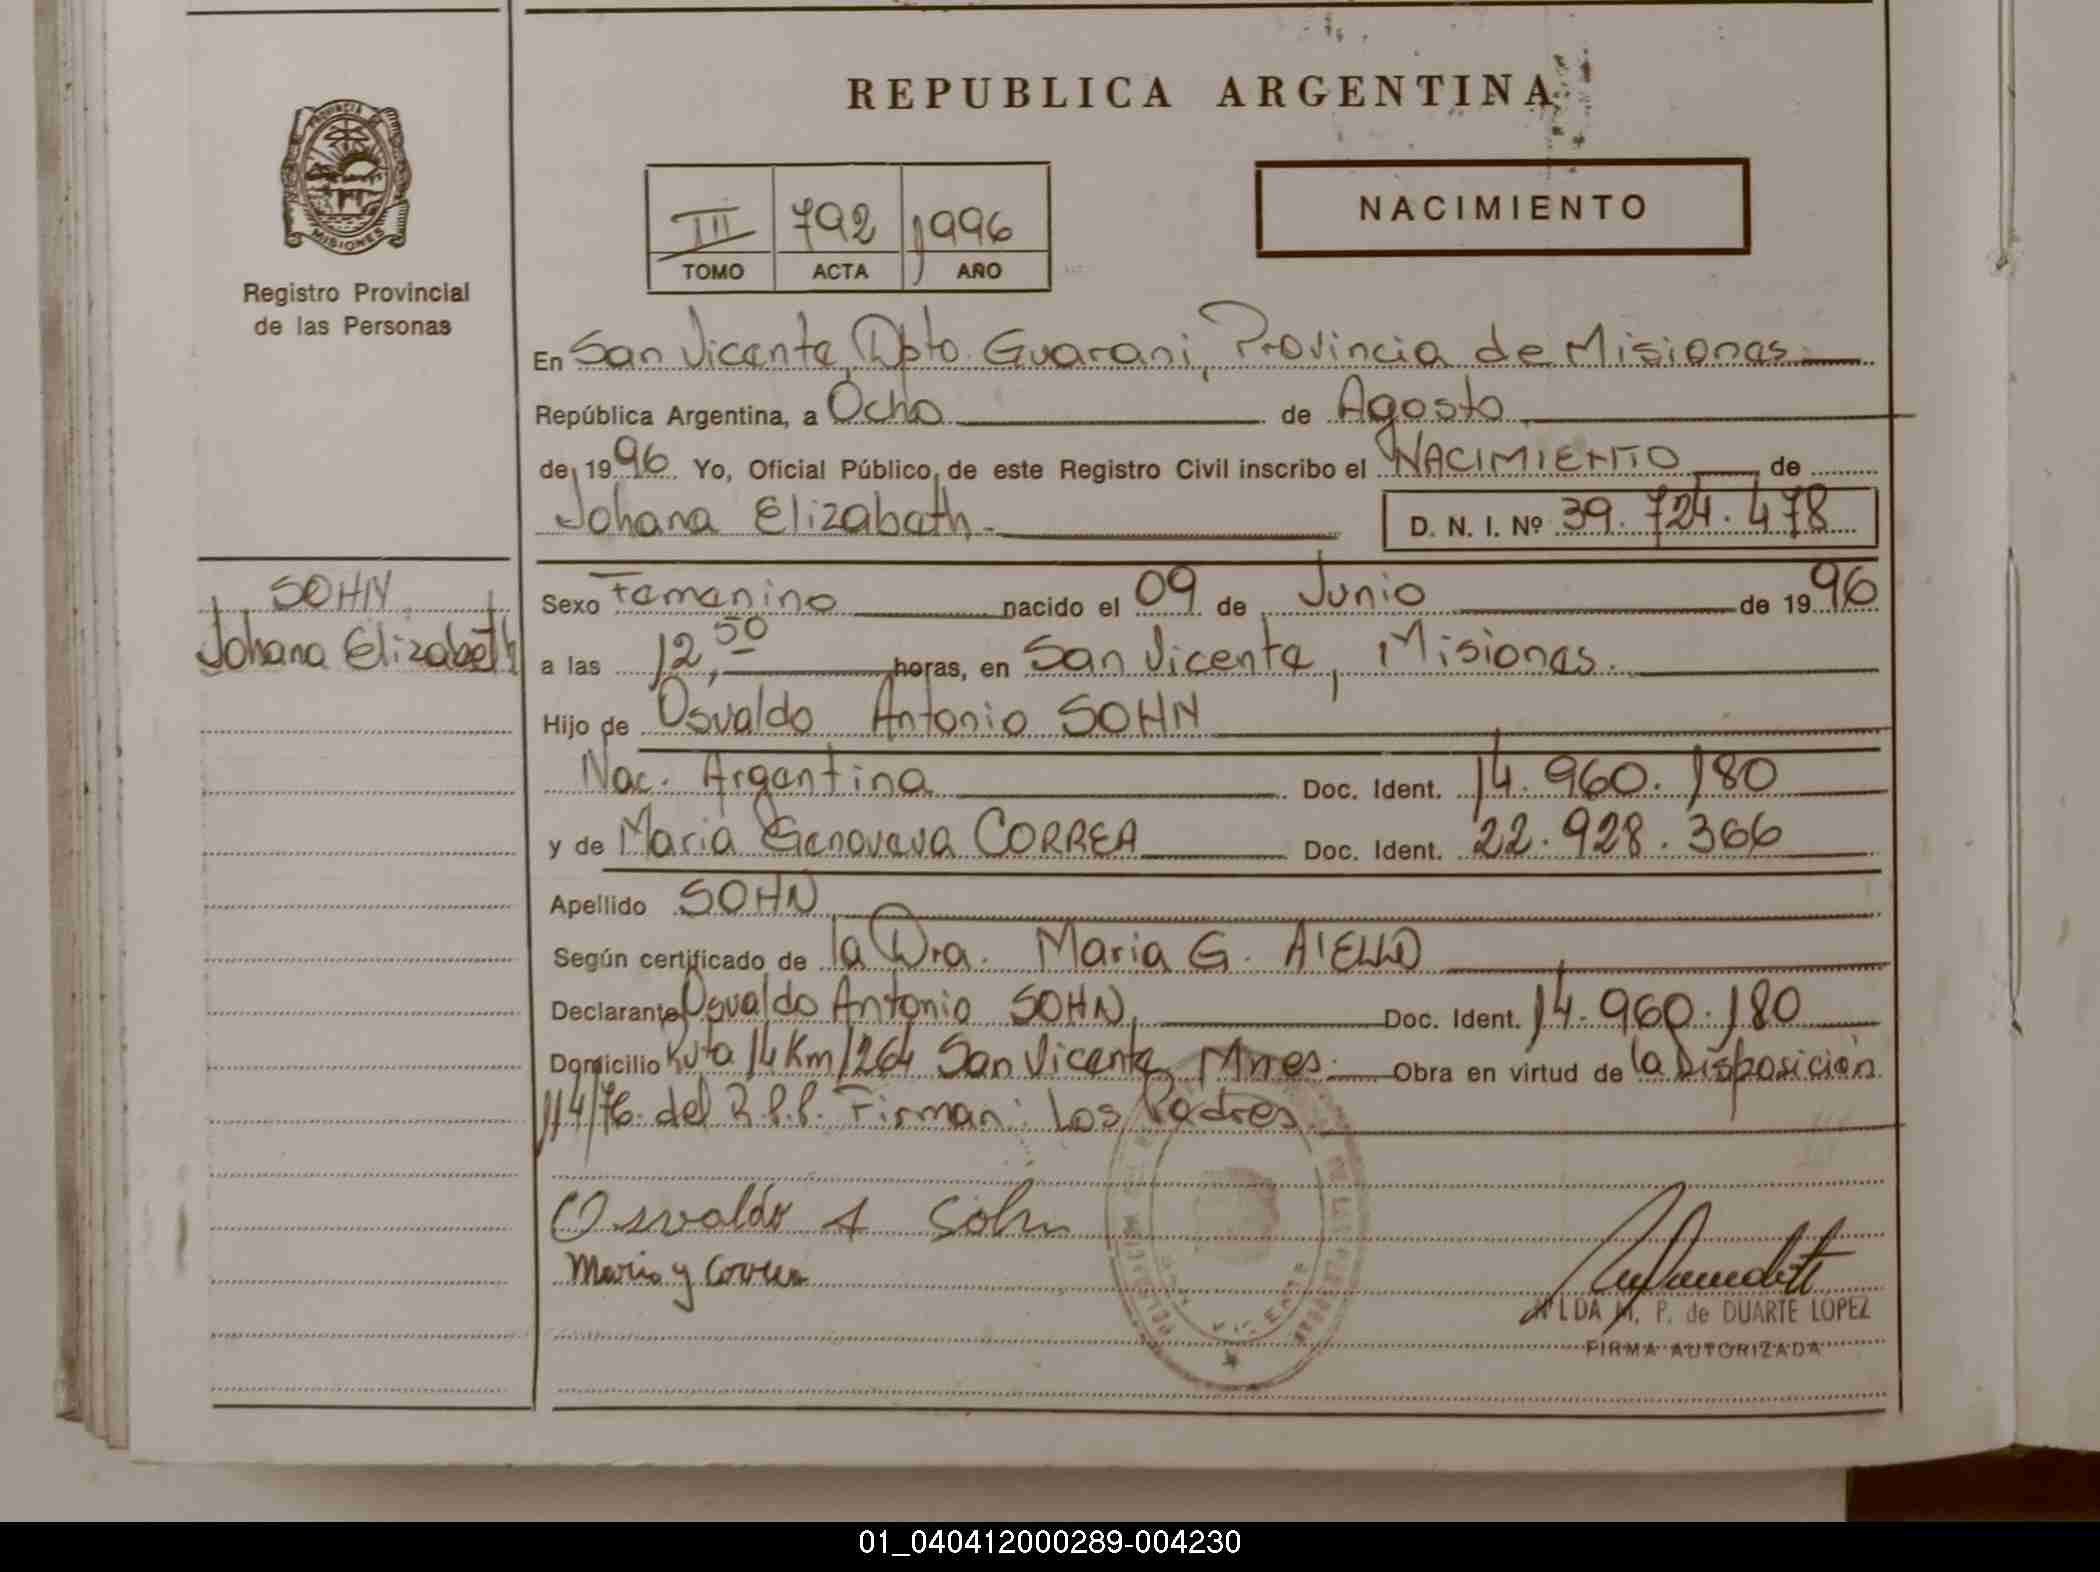 REPUBLICA ARGENTINA
PROVINCIA DE
MISIONES
Registro Provincial
de las Personas
III 792 1996
TOMO ACTA AÑO
NACIMIENTO
En San Vicente, Dpto. Guarani, Provincia de Misiones.
República Argentina, a Ocho de Agosto
de 1996 Yo, Oficial Público de este Registro Civil inscribo el NACIMIENTO de
Johana Elizabeth. D. N. I. Nº 39.724.478
SOHN
Johana Elizabeth
Sexo Femenino nacido el 09 de Junio de 1996
a las 12,50 horas, en San Vicente, Misiones.
Hijo de Osvaldo Antonio SOHN
Nac. Argentina Doc. Ident. 14.960.180
y de Maria Genoveva CORREA Doc. Ident. 22.928.366
Apellido SOHN
Según certificado de la Dra. Maria G. AIELLO
Declarante Osvaldo Antonio SOHN, Doc. Ident. 14.960.180
Domicilio Ruta 14 Km 1264 San Vicente Mnes. Obra en virtud de la Disposición
114/76. del R.P.P. Firman: Los Padres
Osvaldo A Sohn
Maria y Correa
VICENTE
NILDA M. P. de DUARTE LOPEZ
FIRMA AUTORIZADA
01_040412000289-004230